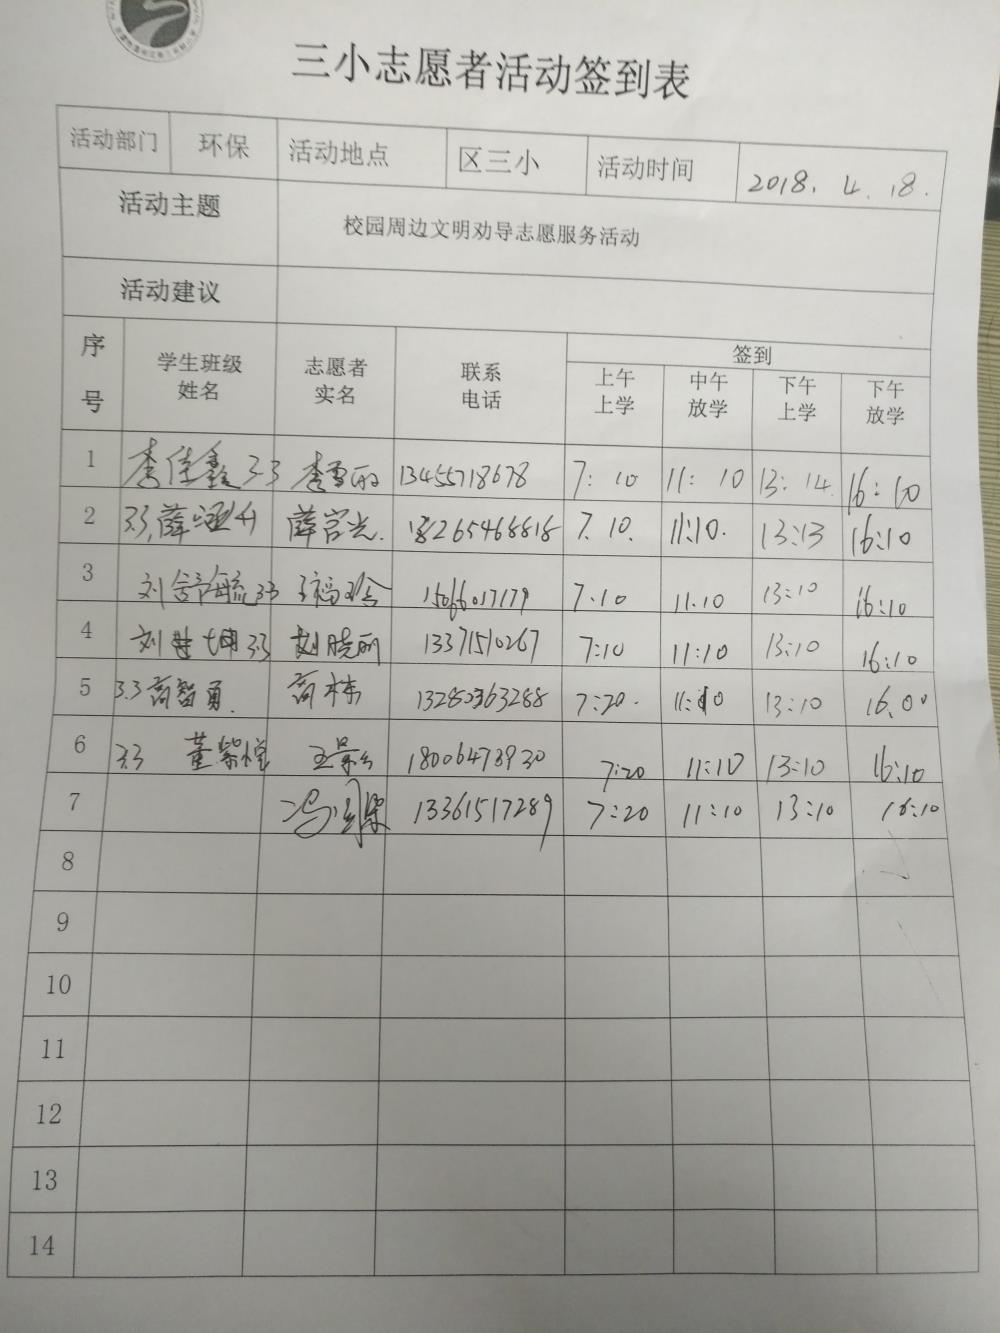 三小志愿者活动签到表
活动部门 环保 活动地点 区三小 活动时间 2018.4.18.
活动主题 校园周边文明劝导志愿服务活动
活动建议
序号 学生班级姓名 志愿者实名 联系电话 签到
上午上学 中午放学 下午上学 下午放学
1 李佳鑫 3.3 李雪丽 13455718678 7:10 11:10 13:14 16:10
2 3.3,薛 薛宫光. 18265468818 7.10. 11:10. 13:13 16:10
3 刘舒毓 3.3 15066017179 7.10 11.10 13:10 16:10
4 刘 坤 3.3 刘晓丽 13371510267 7:10 11:10 13:10 16:10
5 3.3 商智勇. 商栋 13280363288 7:20. 11:10 13:10 16.00
6 3.3 董紫悦 王景 18006473930 7:20 11:10 13:10 16:10
7 冯 13361517289 7:20 11:10 13:10 16:10
8
9
10
11
12
13
14